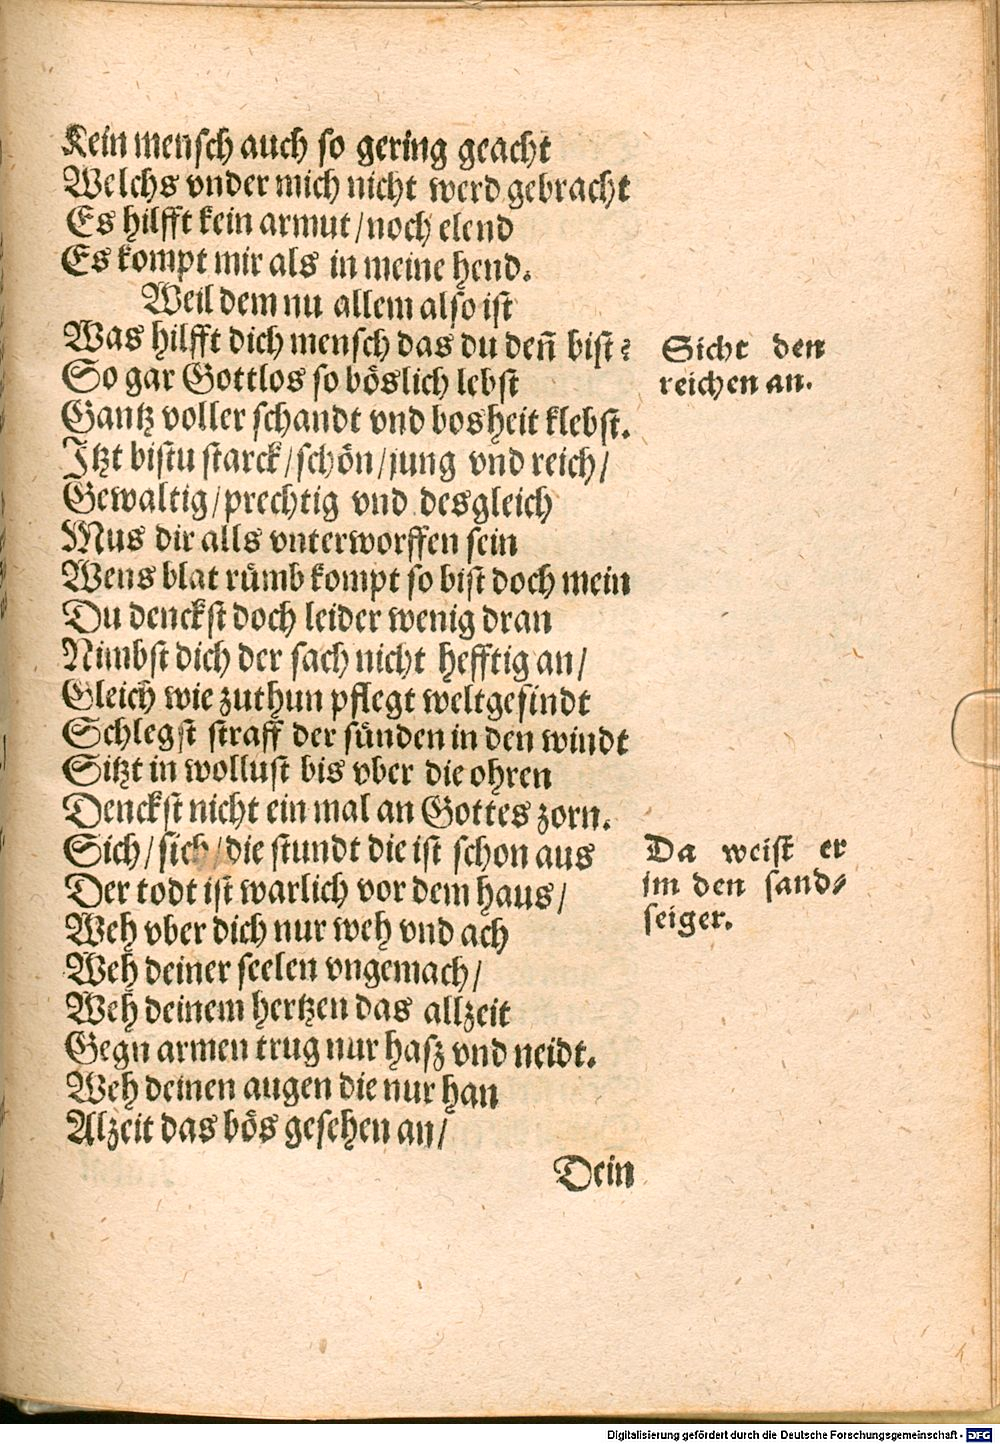 Kein mensch auch so gering geacht
Welchs vnder mich nicht werd gebracht
Es hilfft kein armut/noch elend
Es kompt mir als in meine hend.
Weil dem nu allem also ist
Was hilfft dich mensch das du deñ bist?
So gar Gottlos so böslich lebst
Gantz voller schandt vnd bosheit klebst.
Itzt bistu starck/schön/jung vnd reich/
Gewaltig/prechtig vnd desgleich
Mus dir alls vnterworffen sein
Wens blat rümb kompt so bist doch mein
Du denckst doch leider wenig dran
Nimbst dich der sach nicht hefftig an/
Gleich wie zuthun pflegt weltgesindt
Schlegst straff der sünden in den windt
Sitzt in wollust bis vber die ohren
Denckst nicht ein mal an Gottes zorn.
Sich/sich/die stundt die ist schon aus
Der todt ist warlich vor dem haus/
Weh vber dich nur weh vnd ach
Weh deiner seelen vngemach/
Weh deinem hertzen das allzeit
Gegn armen trug nur hasz vnd neidt.
Weh deinen augen die nur han
Alzeit das bös gesehen an/
Dein
Sicht den
reichen an.
Da weist er
im den sand-
seiger.
Digitalisierung gefördert durch die Deutsche Forschungsgemeinschaft - DFG